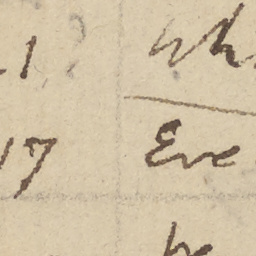 1 Wh
17 Eve
he